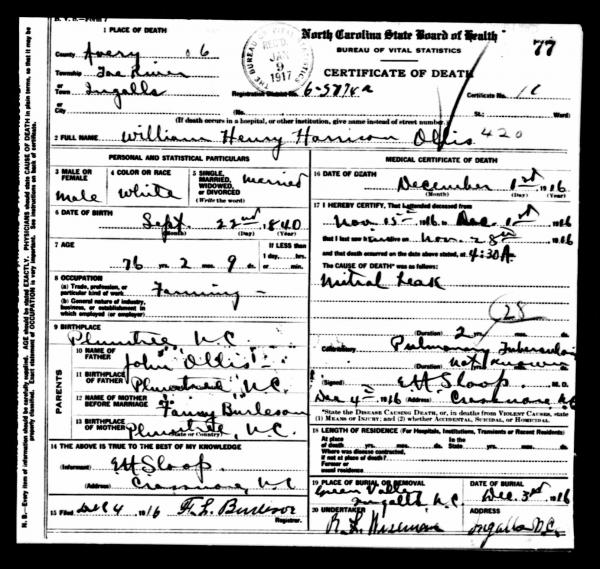 1 PLACE OF DEATH
County Avery 06
Township Toe River
or
Town Ingalls
or
City
North Carolina State Board of Health
BUREAU OF VITAL STATISTICS
CERTIFICATE OF DEATH
77
THE BUREAU OF VITAL STATISTICS
REC'D
JAN
9
1917
Registration District No. 6-5774a
Certificate No.
(No. St.; Ward)
(If death occurs in a hospital, or other institution, give name instead of street number.)
2 FULL NAME William Henry Harrison Ollis 420
PERSONAL AND STATISTICAL PARTICULARS
3 MALE OR FEMALE
male
4 COLOR OR RACE
White
5 SINGLE, MARRIED, WIDOWED, or DIVORCED
(Write the word)
married
6 DATE OF BIRTH
Sept. 22nd, 1840
(Month) (Day) (Year)
7 AGE
76 yrs. 2 mos. 9 ds.
If LESS than
1 day, hrs.
or min.
8 OCCUPATION
(a) Trade, profession, or particular kind of work Farming
(b) General nature of industry, business, or establishment in which employed (or employer)
9 BIRTHPLACE
Plumtree, N.C.
PARENTS
10 NAME OF FATHER
John Ollis
11 BIRTHPLACE OF FATHER
Plumtree, N.C.
12 NAME OF MOTHER BEFORE MARRIAGE
Fanny Burleson
13 BIRTHPLACE OF MOTHER
(State or Country)
Plumtree, N.C.
14 THE ABOVE IS TRUE TO THE BEST OF MY KNOWLEDGE
(Informant) EH Sloop
(Address) Crossnore, N.C.
15 Filed Dec 4, 1916 F. L. Burleson
Registrar.
MEDICAL CERTIFICATE OF DEATH
16 DATE OF DEATH
December 1st, 1916
(Month) (Day) (Year)
17 I HEREBY CERTIFY, That I attended deceased from
Nov 15th 1916 to Dec. 1st 1916
that I last saw alive on Nov. 28th 1916
and that death occurred on the date above stated, at 4:30A
The CAUSE OF DEATH* was as follows:
Mitral Leak
(Duration) 2 yrs. mos. ds.
Contributory Pulmonary Tuberculosis
(Duration) not known
(Signed) EH Sloop M.D.
Dec 4th 1916 (Address) Crossnore N.C.
*State the DISEASE CAUSING DEATH, or, in deaths from VIOLENT CAUSES, state (1) MEANS OF INJURY; and (2) whether ACCIDENTAL, SUICIDAL, or HOMICIDAL.
18 LENGTH OF RESIDENCE (For Hospitals, Institutions, Transients or Recent Residents)
At place of death yrs. mos. ds. In the State yrs. mos. ds.
Where was disease contracted, if not at place of death?
Former or usual residence
19 PLACE OF BURIAL OR REMOVAL
Green Valley
Ingalls, N.C.
DATE OF BURIAL
Dec. 3rd, 1916
20 UNDERTAKER
R. L. Wiseman
ADDRESS
Ingalls N.C.
N. B.—Every item of information should be carefully supplied. AGE should be stated EXACTLY. PHYSICIANS should state CAUSE OF DEATH in plain terms, so that it may be properly classified. Exact statement of OCCUPATION is very important. See instructions on back of certificate.